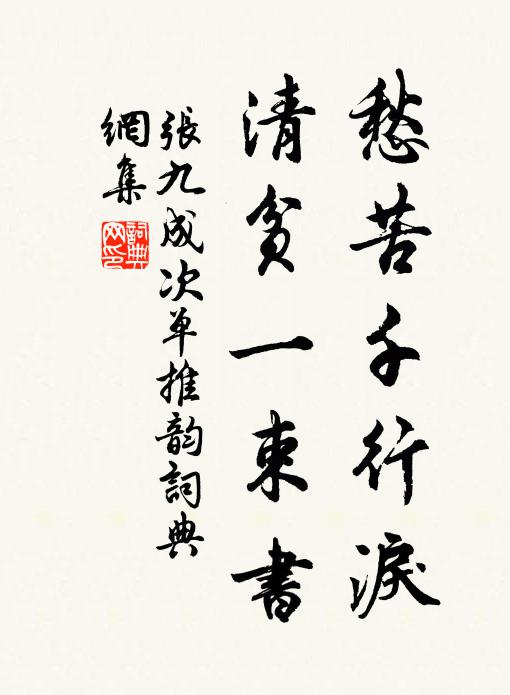 愁苦千行淚
清貧一束書
張九成次單推韵詞典
網集
詞典网印